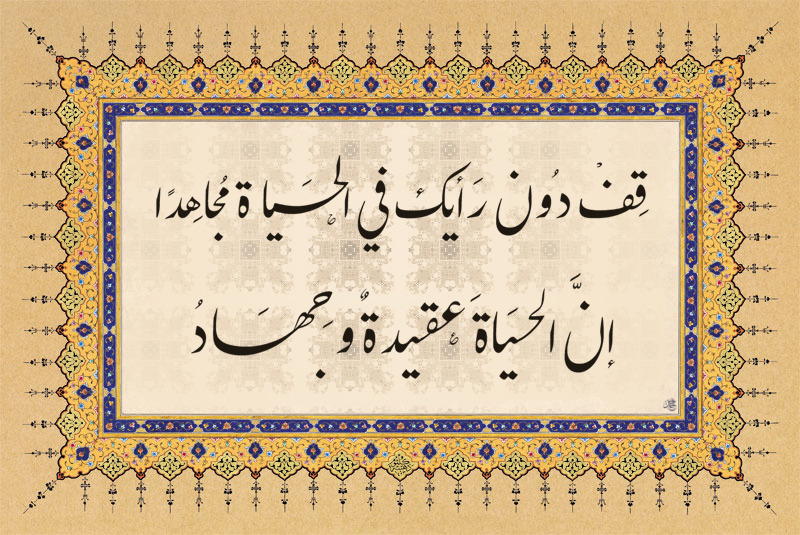 قِفْ دُون رَأيك في الحَياة مُجاهِدًا
إنَّ الحَيَاة عَقيدةٌ وَجِهَادُ